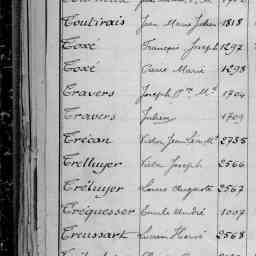 Toutirais Jean Marie Julien 1818
Toxé François Joseph 1297
Toxé Pierre Marie 1298
Travers Joseph Pre Me 1704
Travers Julien 1709
Trécan Victor Jean Léon Me 2735
Trelluyer Victor Joseph 2566
Tréluyer Louis Auguste 2567
Tréquesser Emile André 1007
Treussart Lucien Hervé 2568